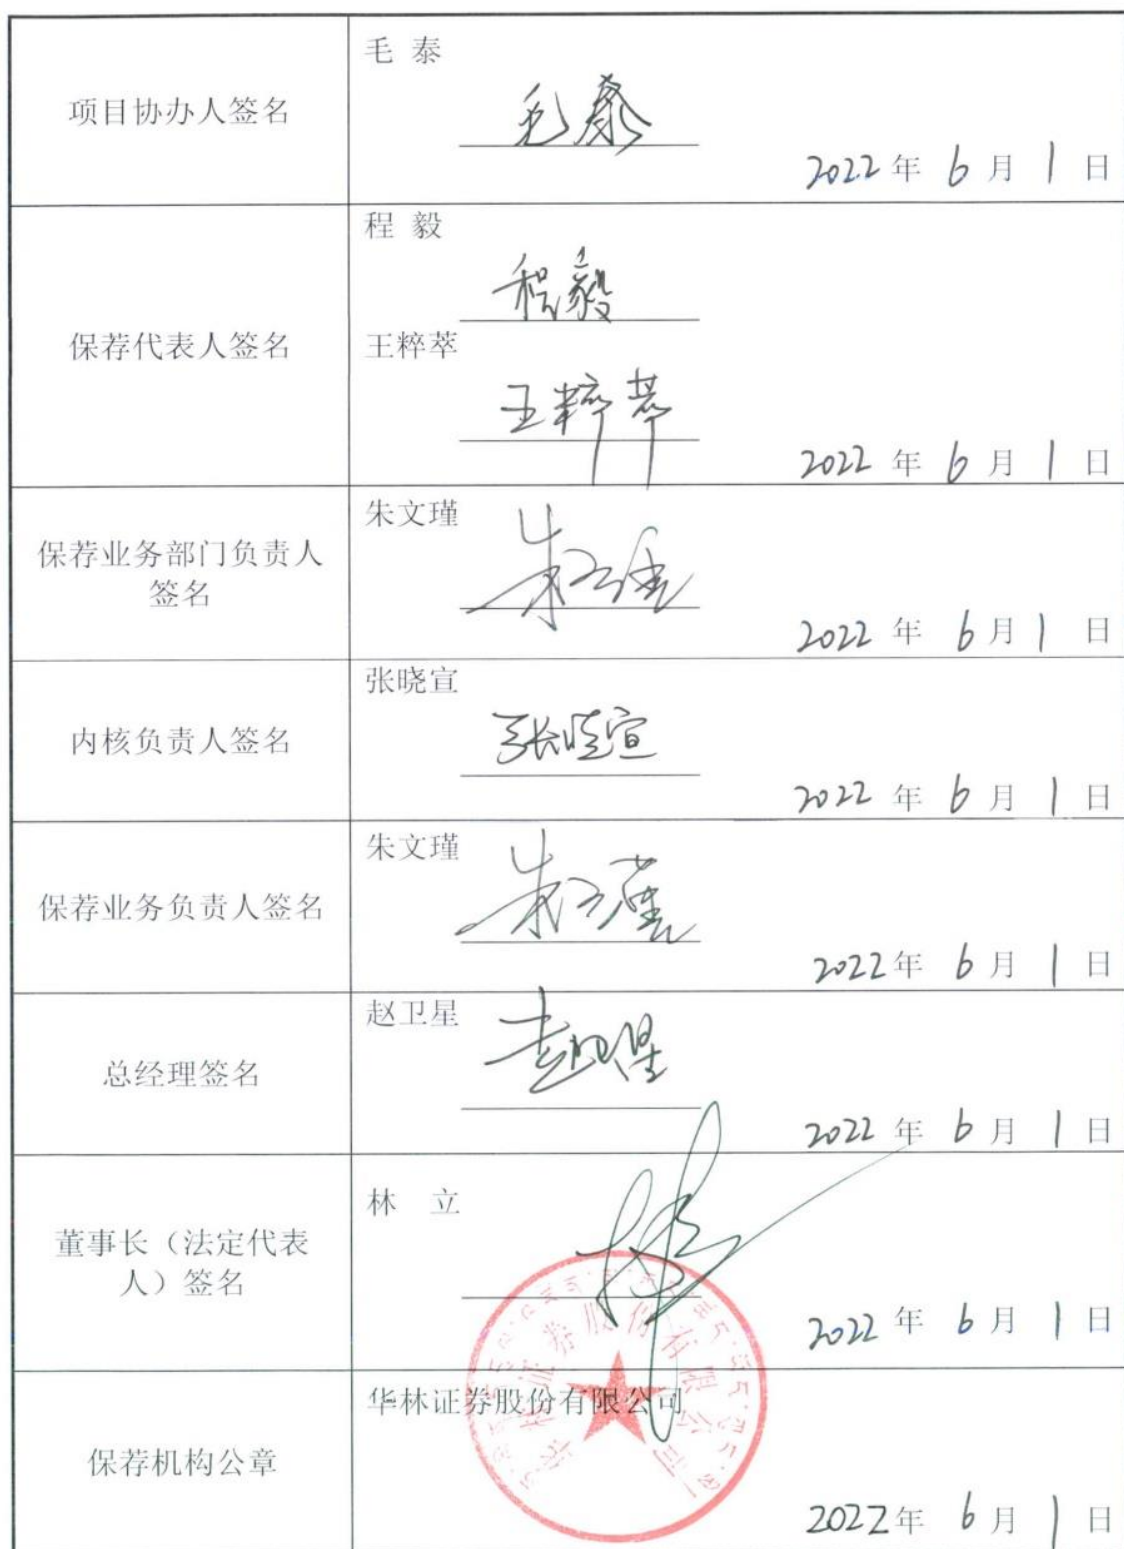 项目协办人签名
毛 泰
毛泰
2022年 6月 1日
保荐代表人签名
程 毅
程毅
王粹萃
王粹萃
2022年 6月 1日
保荐业务部门负责人
签名
朱文瑾
朱文瑾
2022年 6月 1日
内核负责人签名
张晓宣
张晓宣
2022年 6月 1日
保荐业务负责人签名
朱文瑾
朱文瑾
2022年 6月 1日
总经理签名
赵卫星
赵卫星
2022年 6月 1日
董事长（法定代表
人）签名
林 立
林立
2022年 6月 1日
保荐机构公章
华林证券股份有限公司
华林证券股份有限公司
2022年 6月 1日